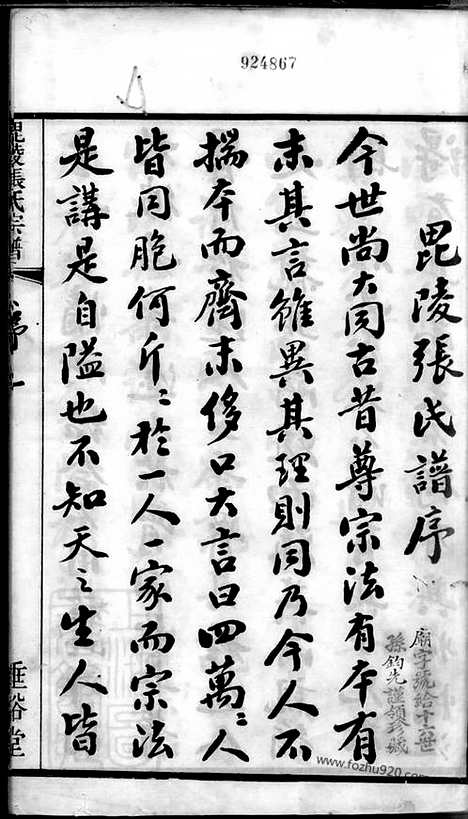 924867
毘陵張氏譜序
廟字號給十一世
孫鈞先謹領珍藏
今世尚大同古昔尊宗法有本有
末其言雖異其理則同乃今人不
揣本而齊末侈口大言曰四萬〻人
皆同胞何斤〻於一人一家而宗法
是講是自隘也不知天之生人皆
毘陵張氏宗譜
垂裕堂
www.fozhu920.com